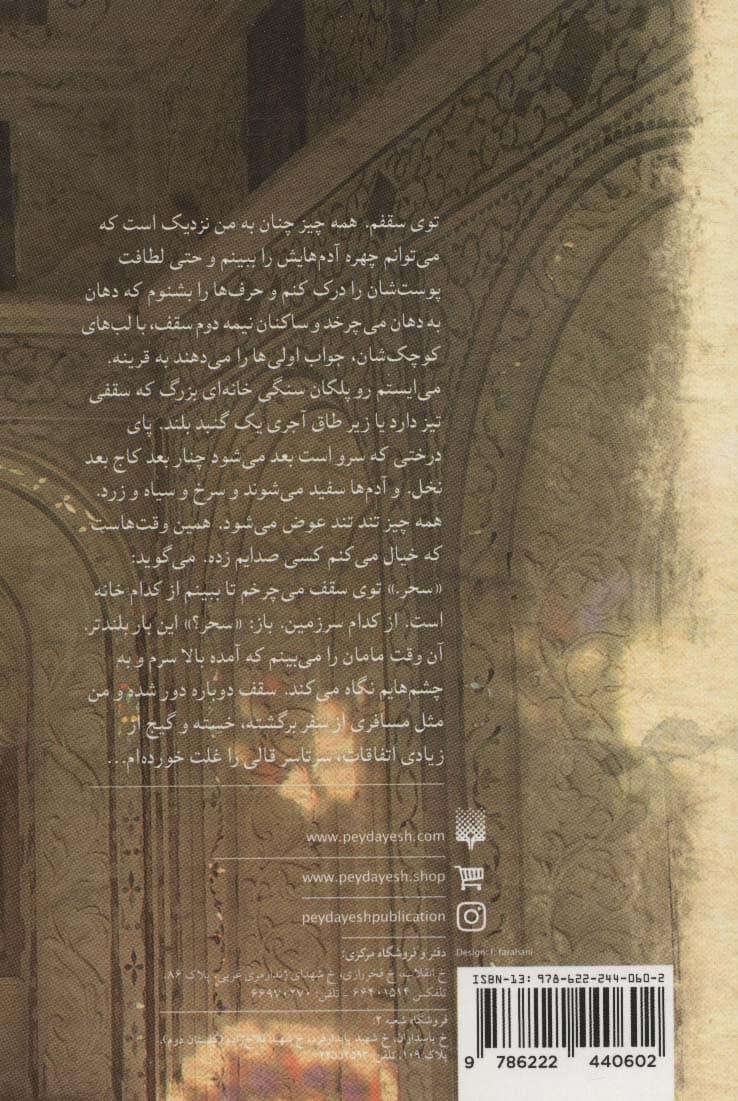 توی سقفم. همه چیز چنان به من نزدیک است که
می‌توانم چهره آدم‌هایش را ببینم و حتی لطافت
پوست‌شان را درک کنم و حرف‌ها را بشنوم که دهان
به دهان می‌چرخد و ساکنان نیمه دوم سقف، با لب‌های
کوچک‌شان، جواب اولی‌ها را می‌دهند به قرینه.
می‌ایستم رو پلکان سنگی خانه‌ای بزرگ که سقفی
تیز دارد یا زیر طاق آجری یک گنبد بلند. پای
درختی که سرو است بعد می‌شود چنار بعد کاج بعد
نخل. و آدم‌ها سفید می‌شوند و سرخ و سیاه و زرد.
همه چیز تند تند عوض می‌شود. همین وقت‌هاست
که خیال می‌کنم کسی صدایم زده. می‌گوید:
«سحر.» توی سقف می‌چرخم تا ببینم از کدام خانه
است. از کدام سرزمین. باز: «سحر؟» این بار بلندتر.
آن وقت مامان را می‌بینم که آمده بالا سرم و به
چشم‌هایم نگاه می‌کند. سقف دوباره دور شده و من
مثل مسافری از سفر برگشته، خسته و گیج از
زیادی اتفاقات، سرتاسر قالی را غلت خورده‌ام...
www.peydayesh.com
www.peydayesh.shop
peydayeshpublication
دفتر و فروشگاه مرکزی:
خ انقلاب، خ فخررازی، خ شهدای ژاندارمری غربی، پلاک ۸۶.
تلفکس: ۶۶۴۰۱۵۱۴ - تلفن: ۶۶۹۷۰۲۷۰
فروشگاه شعبه ۲:
خ پاسداران، خ شهید پایدارفرد، خ شهید (گلستان دوم)،
پلاک ۱۰۹، تلفن:
Design: f. farahani
ISBN-13: 978-622-244-060-2
9 786222 440602